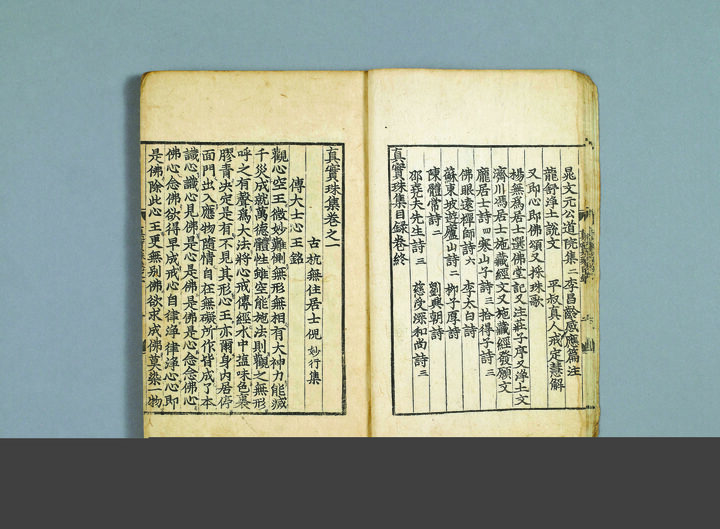 晁文元公道院集二 李昌齡感應篇注
龍舒淨土說文 平叔真人戒定慧解
又即心即佛頌又採珠歌
楊無爲居士選佛堂記又注莊子序又淨土文
濟川馮居士施藏經文又施藏經發願文
龐居士詩四 寒山子詩三 拾得子詩三
佛眼遠禪師詩六 李太白詩
蘇東坡遊廬山詩二 柳子厚詩
陳體常詩二 劉興朝詩
邵堯夫先生詩三 慈受深和尚詩三
真實珠集目録卷終
真實珠集卷之一
古杭無住居士俔 妙行集
傅大士心王銘
觀心空王微妙難惻無形無相有大神力能滅
千災成就萬德體性雖空能施法則觀之無形
呼之有聲爲大法將心戒傳經水中塩味色裏
膠青决定是有不見其形心王亦爾身内居停
面門出入應物隨情自在無礙所作皆成了本
識心識心見佛是心是佛是佛是心念念佛心
佛心念佛欲得早成戒心自律淨律淨心心即
是佛除此心王更無別佛欲求成佛莫染一物